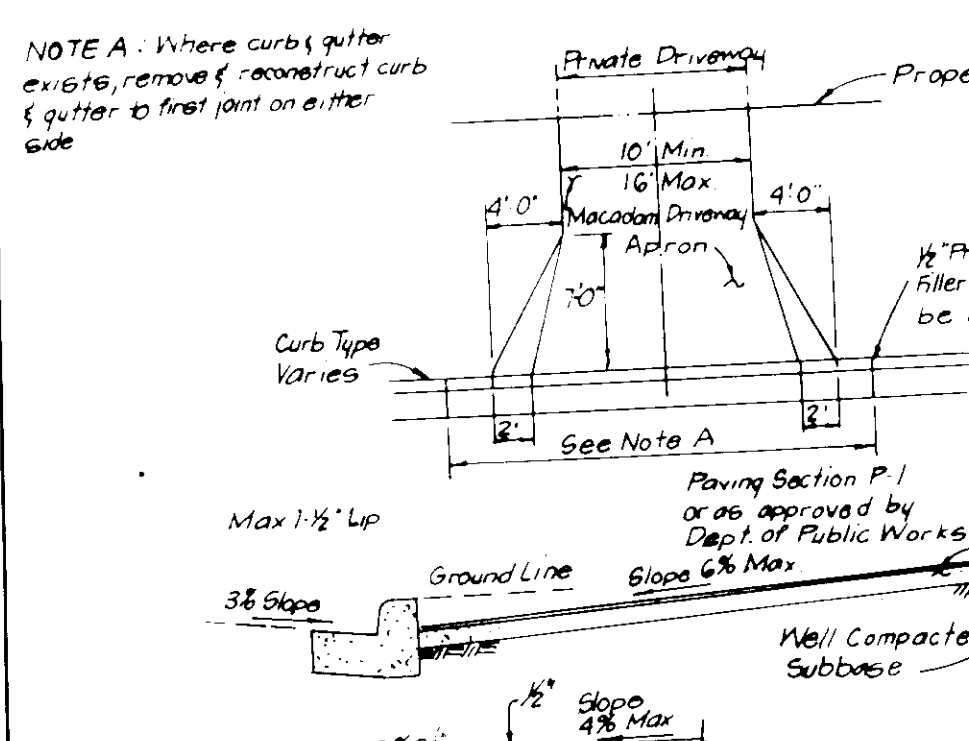 NOTE A : Where curb & gutter
exists, remove & reconstruct curb
& gutter to first joint on either
side
Private Driveway
10' Min.
16' Max.
4'-0"
4'-0"
Macadam Driveway
Apron
7'-0"
1/2"
Filler
be
Curb Type
Varies
2'
2'
See Note A
Paving Section P-1
or as approved by
Dept. of Public Works
Max 1-1/2" Lip
Ground Line
Slope 6% Max.
3% Slope
Subbase
1/2"
Slope
4% Max